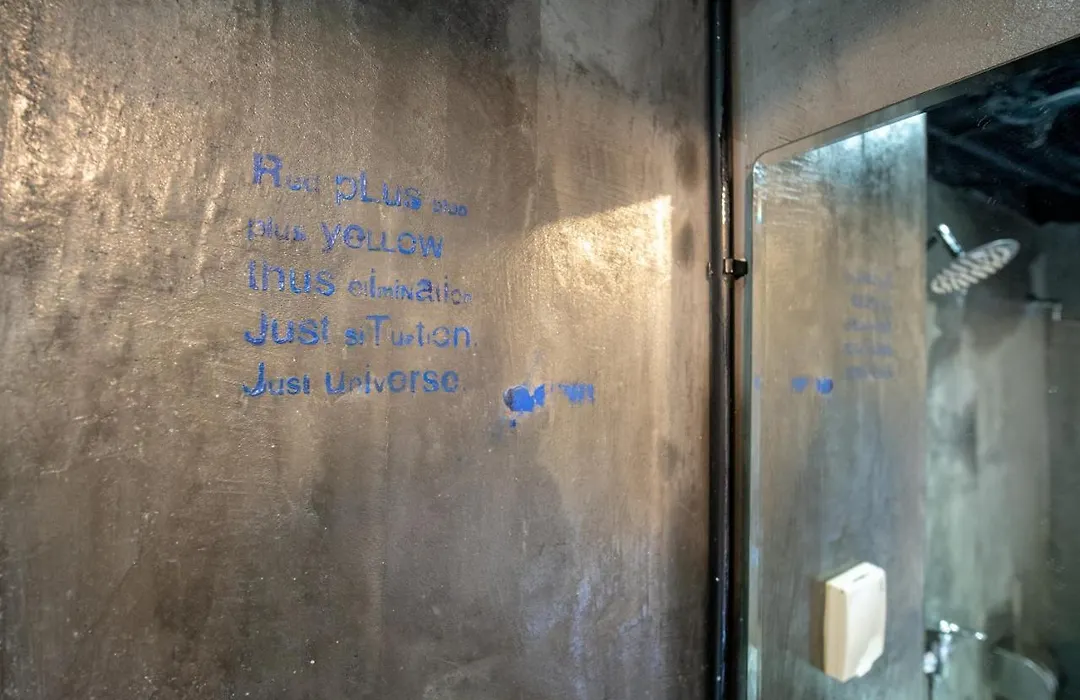 Red pLus blue
plus yeLLOW
thus elimiNation
Just siTuation.
Just Universe.